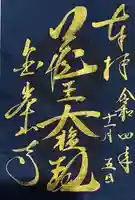 奉拝
令和四年
十一月五日
蔵王大権現
金峯山寺